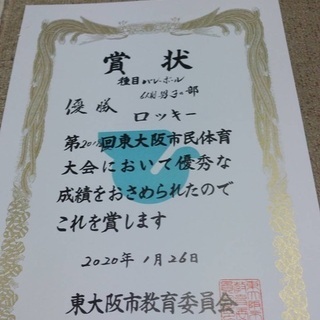 賞状
種目 バレーボール
男子の部
優勝
ロッキー
回東大阪市民体育
大会において優秀な
成績をおさめられたので
これを賞します
2020年1月26日
東大阪市教育委員会